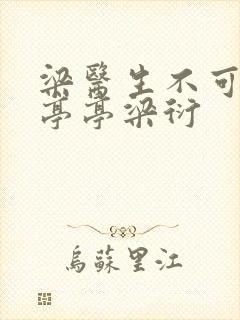 梁醫生不可
亭亭梁衍
烏蘇里江